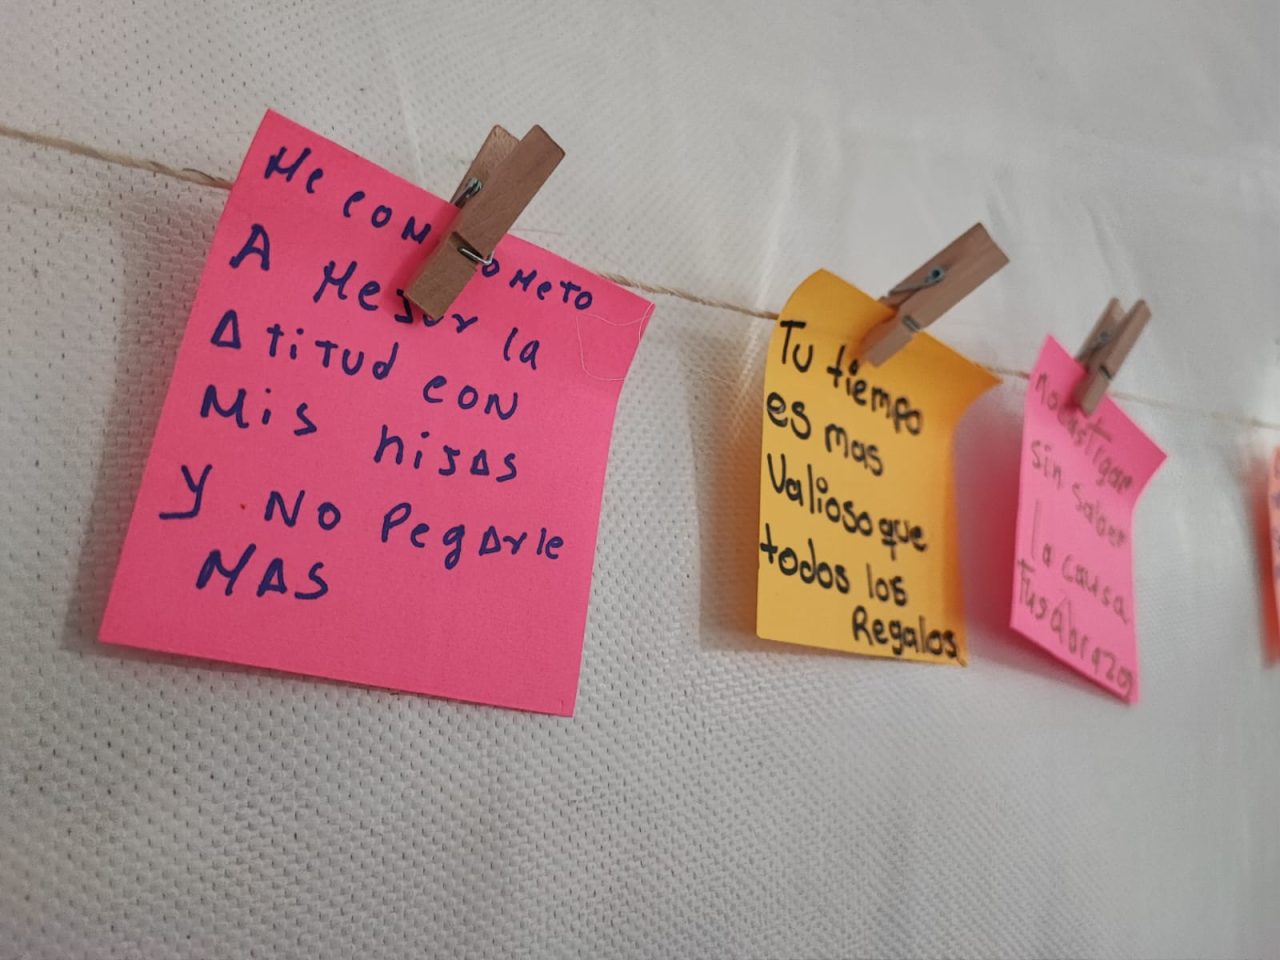 Me comprometo
A Mejor la
Atitud con
Mis hijas
Y No Pegarle
MAS
Tu tiempo
es mas
Valioso que
todos los
Regalos
no castigar
sin saber
la causa
Tus abrazos